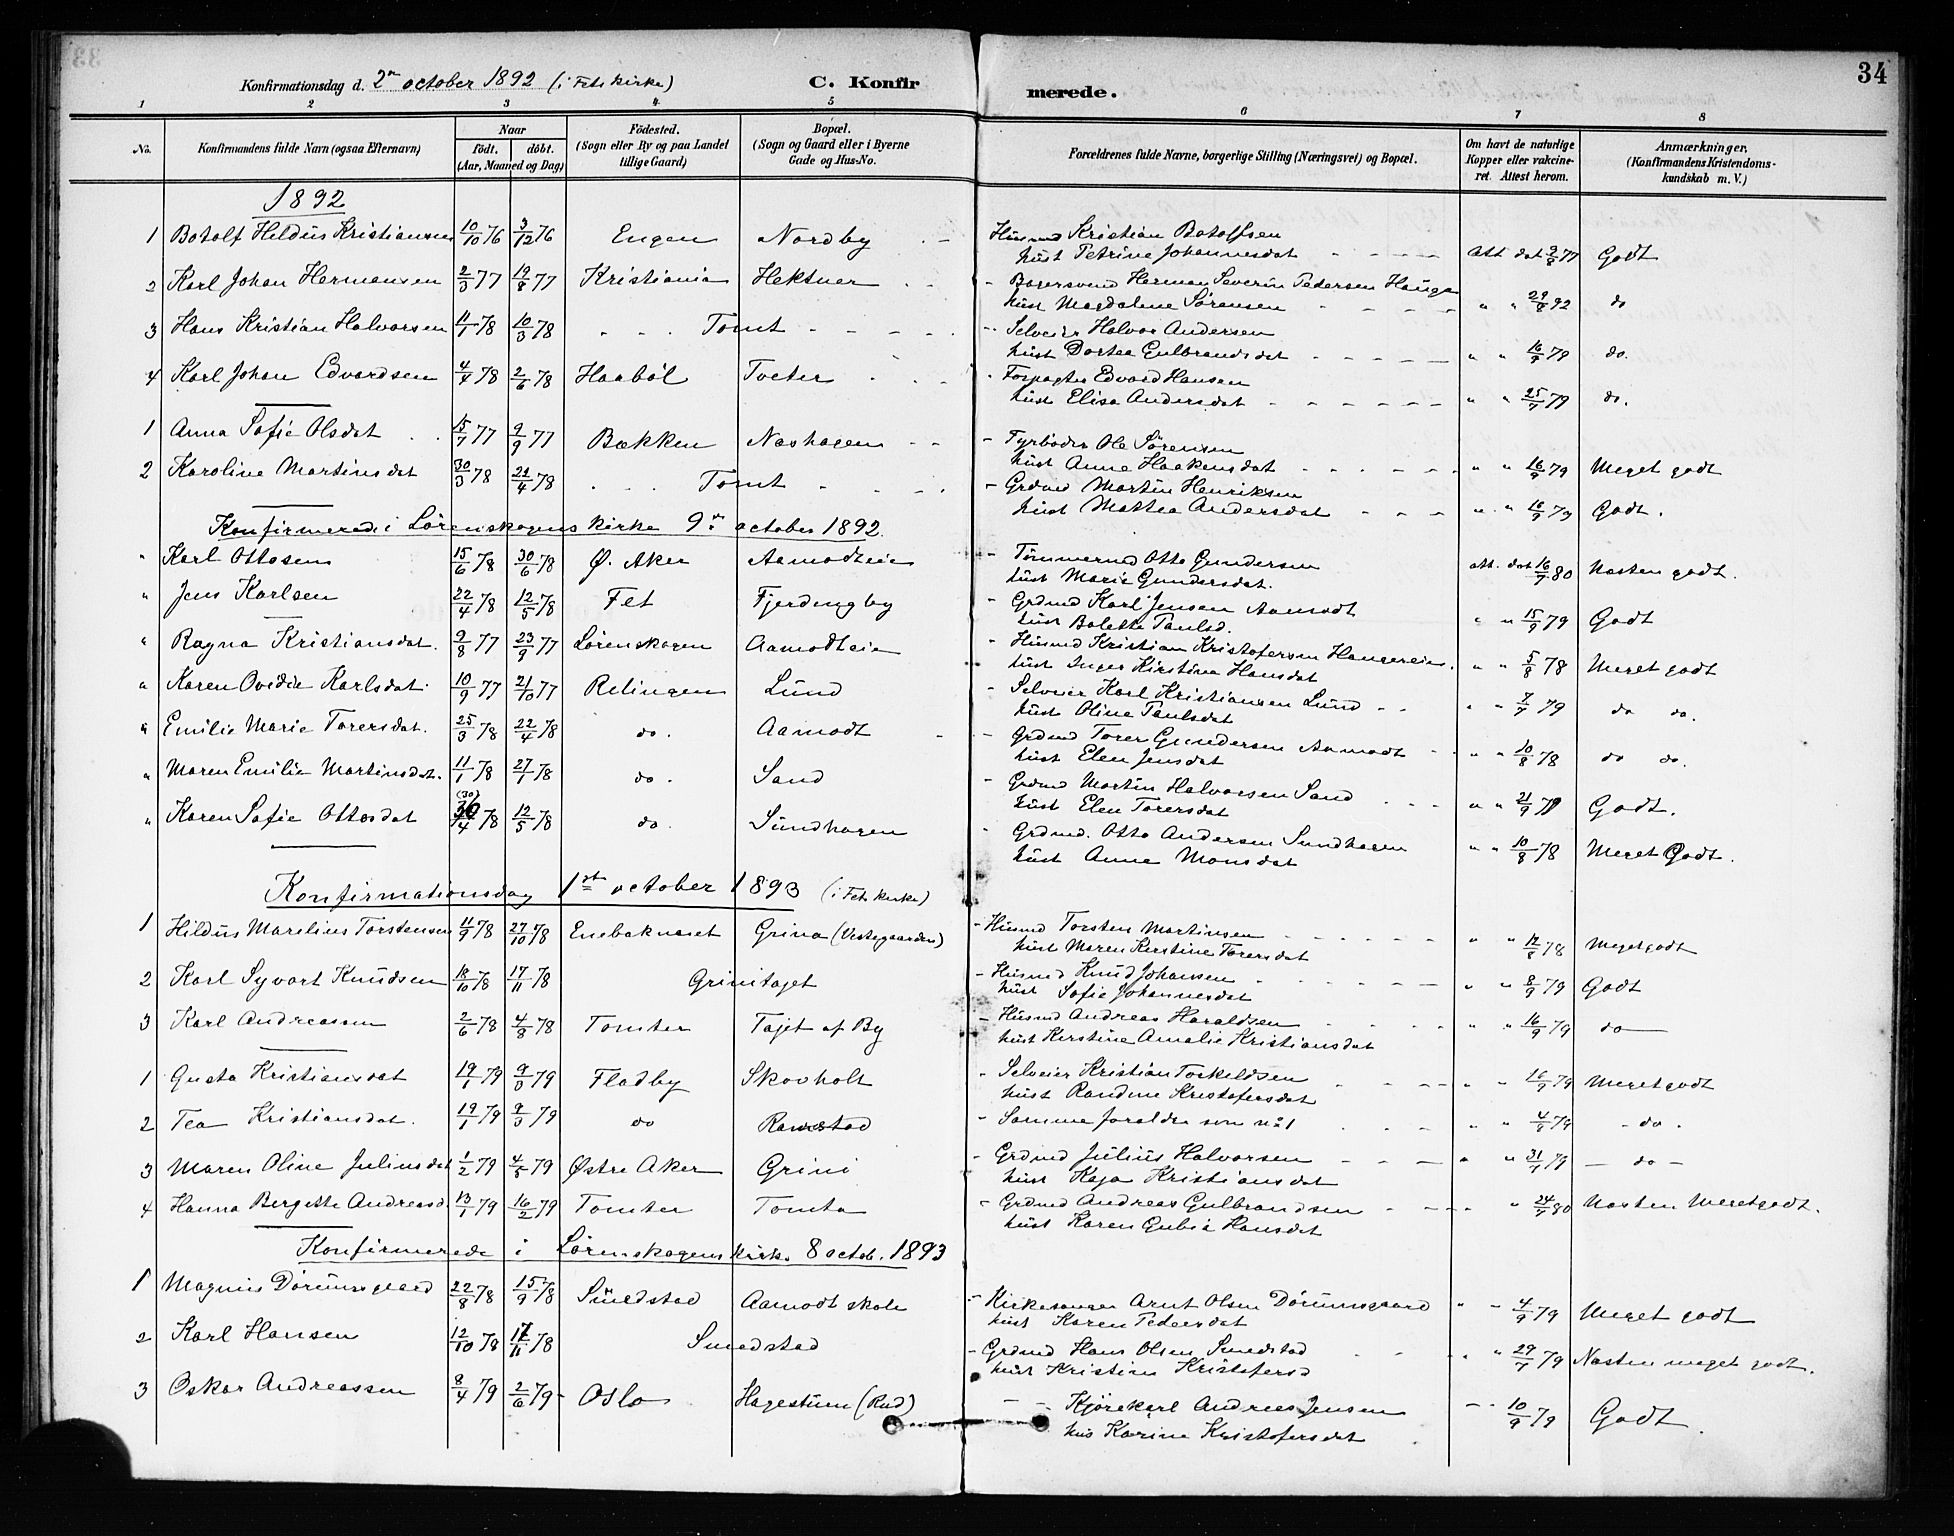 34
Konfirmationsdag d. 2den october 1892 (i Fets kirke) C. Konfirmerede.
1 2 3 4 5 6 7 8
No. Konfirmandens fulde Navn (ogsaa Efternavn) Naar födt. döbt. (Aar, Maaned og Dag) Födested. (Sogn eller By og paa Landet tillige Gaard) Bopæl. (Sogn og Gaard eller i Byerne Gade og Hus-No. Forældrenes fulde Navne, borgerlige Stilling (Næringsvei) og Bopæl. Om havt de naturlige Kopper eller vakcineret. Attest herom. Anmærkninger, (Konfirmandens Kristendomskundskab m. V.)
1892
1 Botolf Hildus Kristiansen 10/10 76 3/12 76 Engen Nordby Husmd Kristian Botolfsen
hust Petrine Johannesdat att dat 9/8 77 Godt
2 Karl Johan Hermansen 2/3 77 19/8 77 Kristiania Hektner Bagersvend Herman Severin Pedersen Hauge
hust Magdalene Sørensen " " 29/8 92 do
3 Hans Kristian Halvorsen 11/1 78 10/3 78 Tomt Selveier Halvor Andersen
hust Dortea Gulbrandsdat " " 16/9 79 do.
4 Karl Johan Edvardsen 4/4 78 2/6 78 Haabøl Tveter Forpagter Edvard Hansen
hust Elise Andersdat " " 25/7 79 do.
1 Anna Sofie Olsdat 15/7 77 9/9 77 Bækken Nashagen Ole Sørensen
hust Anne Haakensdat " " 16/9 79 Meget godt
2 Karoline Martinsdat 30/3 78 22/4 78 Tomt Grdmd Martin Henriksen
hust Mattea Andersdat " " 16/9 79 Godt.
Konfirmerede i Lørenskogens kirke 9de october 1892.
" Karl Ottosen 15/6 78 30/6 78 Ø. Aker Aamodteie Tømmermd Otto Gundersen
hust Marie Gundersdat. att. dat 16/7 80 Næsten godt.
" Jens Karlsen 22/4 78 12/5 78 Fet Fjerdingby Grdmd Karl Jensen Aamodt
hust Bolette Paulsd. " " 15/9 79 Godt
" Ragna Kristiansdat. 9/8 77 23/9 77 Lørenskogen Aamodteie Husmd Kristian Kristofersen Haugereie.
hust Inger Kirstine Hansdat " " 5/8 78 Meget godt
" Karen Ovidie Karlsdat 10/9 77 21/10 77 Relingen Lund Selveier Karl Kristiansen Lund
hust Oline Paulsdat " " 7/7 79 do do.
" Emilie Marie Torersdat. 25/3 78 22/4 78 do. Aamodt Grdmd Torer Gundersen Aamodt
hust Elen Jensdat " " 10/8 78 do do.
" Maren Emilie Martinsdat. 11/1 78 27/1 78 do. Sand Grdmd Martin Halvorsen Sand
hust Elen Torersdat " " 21/9 79 Godt.
" Karen Sofie Ottosdat (30) 4 78 12/5 78 do. Sundhagen Grdmd. Otto Andersen Sundhagen
hust Anne Monsdat " " 10/8 78 Meget Godt.
Konfirmationsdag 1ste october 1893 (i Fets kirke)
1 Hildus Marelius Torstensen 11/9 78 27/10 78 Enebakneset Grina (Vestgaarden) Husmd Torsten Martinsen
hust Maren Kirstine Torersdat " " 12/8 78 Meget godt
2 Karl Syvart Knudsen 18/10 78 17/11 78 Grinitajet Husmd Knud Johansen
hust Sofie Johannesdat " " 8/9 79 Godt
3 Karl Andreassen 2/6 78 4/8 78 Tomter Tajet af By Husmd Andreas Haraldsen
hust Kirstine Amalie Kristiansdat " " 16/9 79 do
1 Gusta Kristiansdat 19/1 79 9/3 79 Fladby Skovholt Selveier Kristian Torkeldsen
hust Randine Kristofersdat " " 16/9 79 Meget godt
2 Tea Kristiansdat. 19/1 79 9/3 79 do Ramstad Samme foraldre som no 1 " " 4/9 79 do.
3 Maren Oline Juliusdat 1/2 79 4/5 79 Østre Aker Grini Grdmd Julius Halvorsen
hust Kaja Kristiansdat " " 31/7 79 do
4 Hanna Bergitte Andreasd. 13/1 79 16/2 79 Tomter Tomta Grdmd Andreas Gulbrandsen
hust Karen Gubia Hansdat " 24/7 80 Næsten Meget godt.
Konfirmerede i Lørenskogens kirke 8 octob. 1893
1 Magnus Dørumsgaard 22/8 78 15/9 78 Smedstad Aamodt skole Kirkesanger Arnt Olsen Dørumsgaard
hust Karen Pedersdat " 4/9 79 Meget godt
2 Karl Hansen 12/10 78 17/11 78 Smedstad Grdmd Hans Olsen Smedstad
hust Kristine Kristofersd " " 29/7 79 Næsten meget godt.
3 Oskar Andreassen 8/4 79 2/6 79 Oslo Hagestuen (Rud) Kjørekarl Andreas Jensen
hus Karine Kristofersdat 10/9 79 Godt.